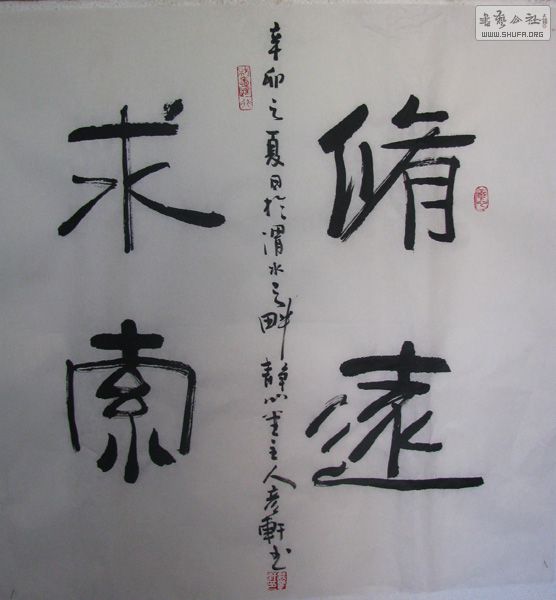 脩遠
求索
辛卯之夏日於渭水之畔 靜心堂主人彦軒书
書藝公社
WWW.SHUFA.ORG